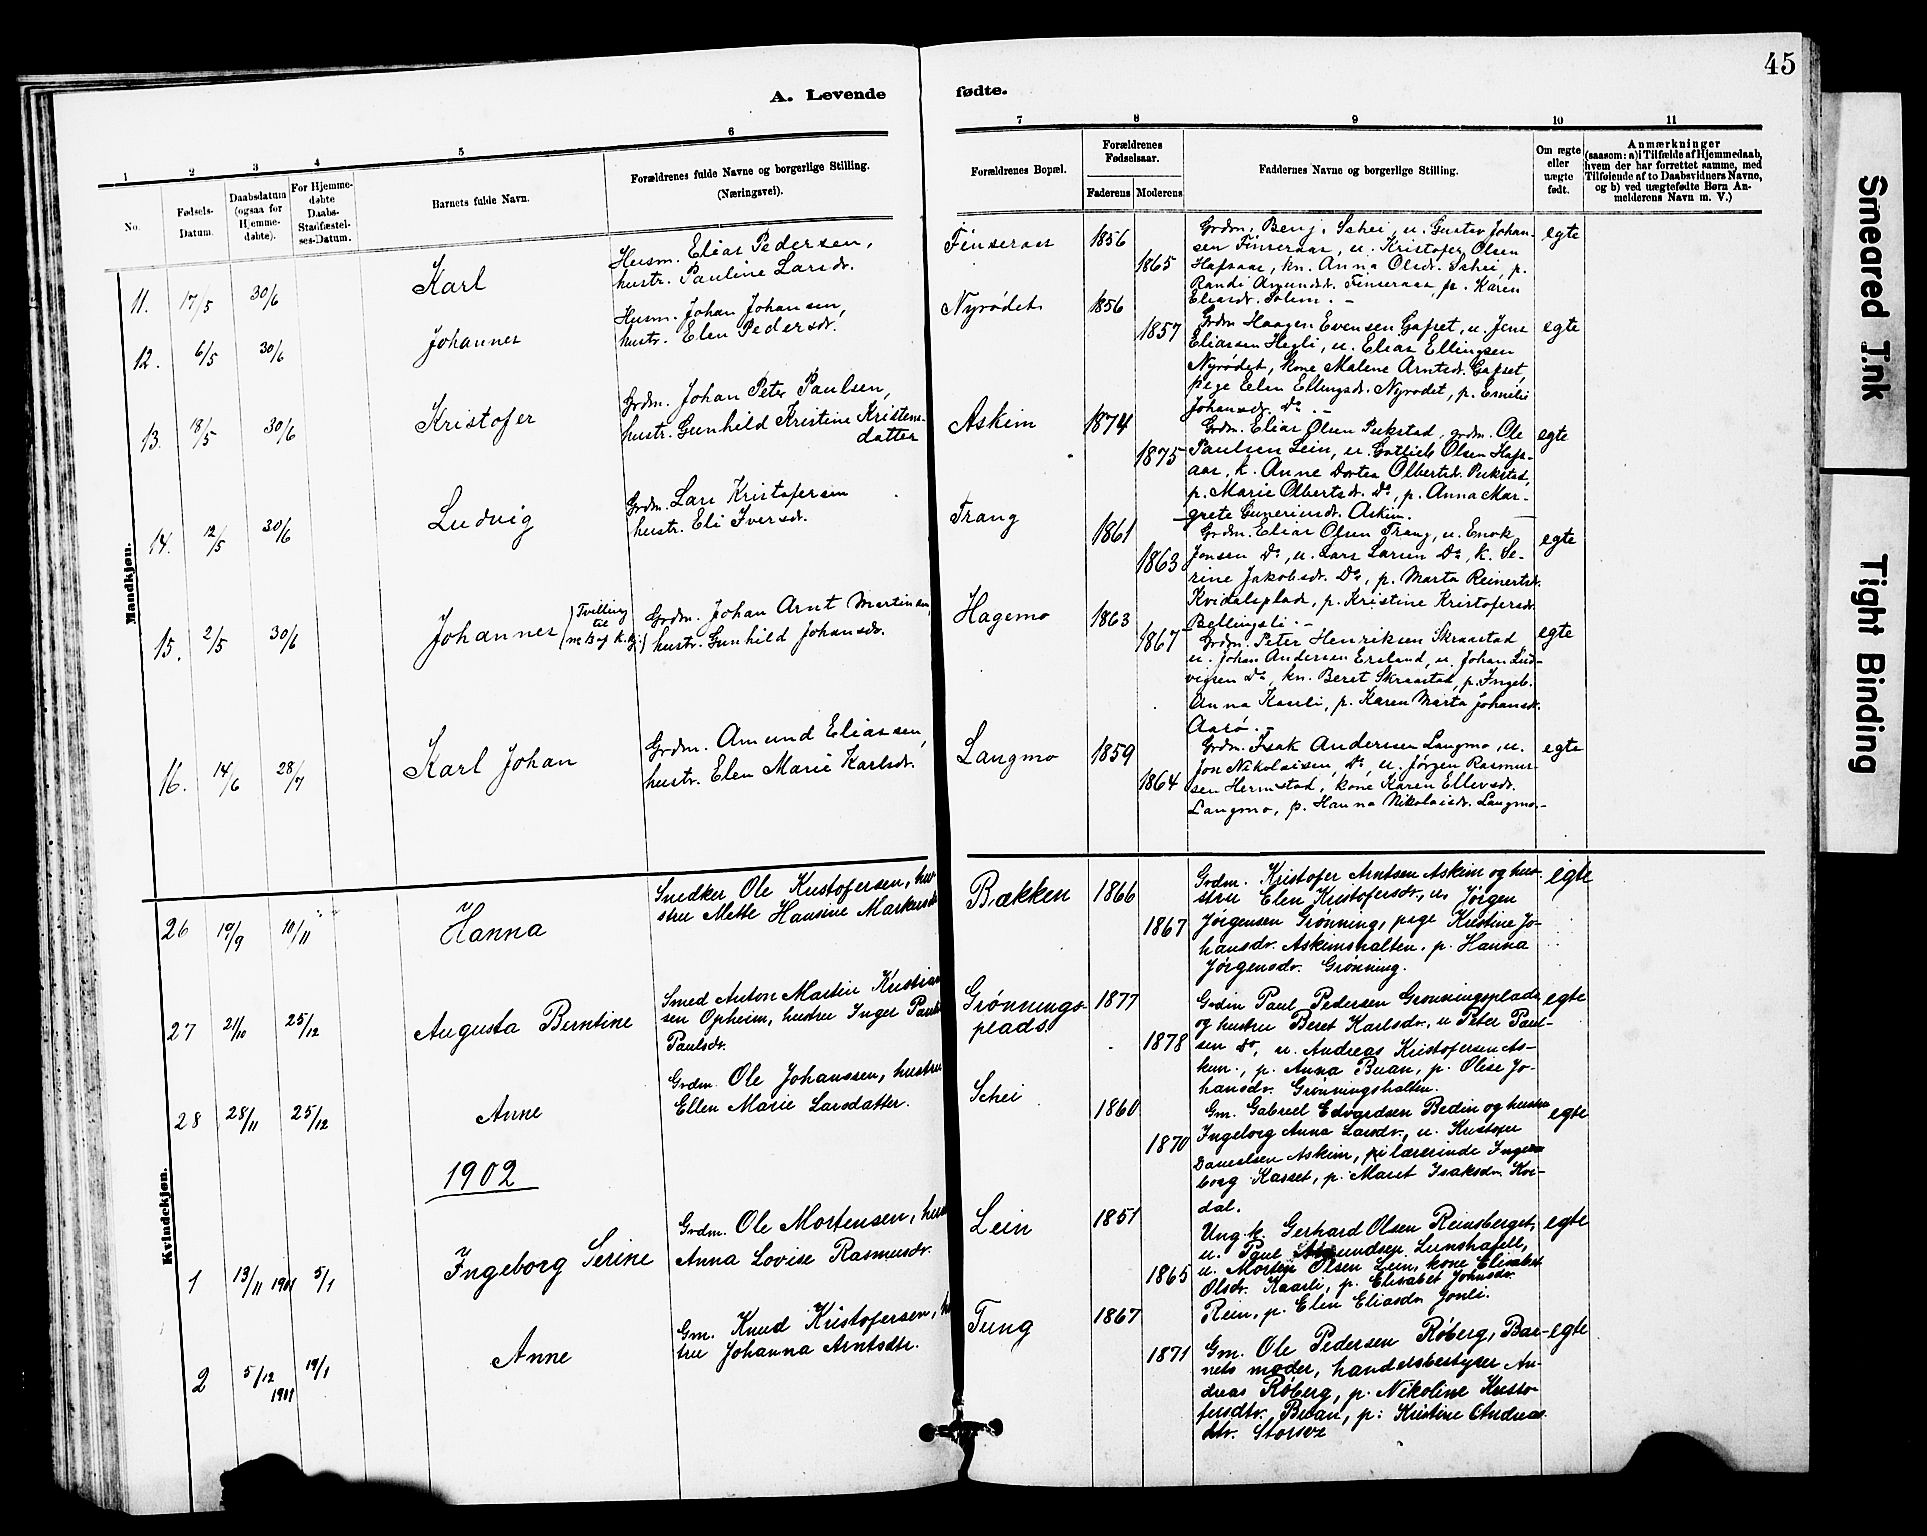 45
A. Levende fødte.
1 2 3 4 5 6 7 8 9 10 11
No.
Fødsels-
Datum.
Daabsdatum
(ogsaa for
Hjemme-
døbte).
For Hjemme-
døbte
Daabs-
Stadfæstel-
ses-Datum.
Barnets fulde Navn.
Forældrenes fulde Navne og borgerlige Stilling.
(Næringsvei).
Forældrenes Bopæl.
Forældrenes
Fødselsaar.
Faderens Moderens
Faddernes Navne og borgerlige Stilling.
Om ægte
eller
uægte
født.
Anmærkninger
(saasom: a) i Tilfælde af Hjemmedaab,
hvem der har forrettet samme, med
Tilføiende af to Daabsvidners Navne,
og b) ved uægtefødte Børn An-
melderens Navn m. V.)
Mandkjøn.
11. 17/5 30/6 Karl
Husm. Elias Pedersen,
hustr. Pauline Larsdr.
Finseraas 1856 1865
Grdm. Benj. Schei, u. Gustav Johan-
sen Finseraas, u. Kristofer Olsen
Hafsaas, kn. Anna Olsdr. Schei, p.
Randi Amundsdr. Finseraas, p. Karen
Eliasdr. Solem. -
egte
12. 6/5 30/6 Johannes
Husm. Johan Johansen,
hustr. Elen Pedersdr.
Nyrødet 1856 1857
Grdm Haagen Evensen Gafset, u. Jens
Eliassen Hegli, u. Elias Ellingsen
Nyrødet, kone Malene Arntsdr. Gafset,
pige Elen Ellingsdr. Nyrødet, p. Emelie
Johansdr. Do. -
egte
13. 18/5 30/6 Kristofer
Grdm. Johan Peter Paulsen,
hustr. Gunhild Kristine Kristens-
datter
Askim 1874 1875
Grdm. Elias Olsen Pukstad, grdm. Ole
Paulsen Lein, u. Gotlieb Olsen Hafs-
aas, k. Anne Dortea Olbertsdr. Pukstad,
p. Marie Olbertsdr. Do, p. Anna Mar-
grete Guneriusdr. Askim.
egte
14. 12/5 30/6 Ludvig
Grdm. Lars Kristofersen
hustr. Eli Iversdr.
Trang 1861 1863
Grdm. Elias Olsen Trang, u. Enok
Jonsen Do, u. Lars Larsen Do, k. Se-
rine Jakobsdr. Do, p. Marta Reinertsdr.
Kvidalsplads, p. Kristine Kristofersdr.
Bellingsli. -
egte
15. 2/5 30/6 Johannes (Tvilling
til
Grdm. Johan Arnt Martinsen,
hustr. Gunhild Johansdr.
Hagemo 1863 1867
Grdm. Peter Henriksen Skraastad
u. Johan Andersen Ersland, u. Johan Lud-
vigsen Do, kn. Beret Skraastad, p. Ingeb.
Anna Kasli, p. Karen Marta Johansdr.
Aarø. -
egte
16. 14/6 28/7 Karl Johan
Grdm. Amund Eliassen,
hustr. Elen Marie Karlsdr.
Langmo 1859 1864
Grdm. Isak Andersen Langmo, u.
Jon Nikolaisen, Do, u. Jørgen Rasmus-
sen Hermstad, kone Karen Ellevsdr.
Langmo, p. Hanna Nikolaisdr. Langmo.-
egte
Kvindekjøn.
26 19/9 10/11 Hanna
Snedker Ole Kristofersen, hu-
stru Mette Hansine Markusdr
Bækken 1866 1867
Grdm. Kristofer Arntsen Askim og hus-
stru Elen Kristofersdr., u. Jørgen
Jørgensen Grønning, pige Kristine Jo-
hansdr. Askimshalten, p. Hanna
Jørgensdr. Grønning.
egte
27 21/10 25/12 Augusta Berntine
Smed Anton Martin Kristian
sen Opheim, hustru Inger Pauls
Paulsdr.
Grønnings-
plads. 1877 1878
Grdm Paul Pedersen Grønningsplads
og hustru Beret Karlsdr., u Peter Paul-
sen Do, u. Andreas Kristofersen As-
kim, p. Anna Buan, p. Oline Jo-
hansdr. Grønningshalten.
egte
28 28/11 25/12 Anne
Grdm. Ole Johanssen, hustru
Ellen Marie Larsdatter.
Schei 1860 1870
Gm. Gabriel Edvardsen Bedin og hustru
Ingeborg Anna Larsdr., u. Kristofer
Danielsen Askim, pi lærerinde Inge-
borg Kasset, p. Marit Isaksdr. Kvi-
dal.
egte
1902
1 13/11 1901 5/1 Ingeborg Serine
Grdm. Ole Mortensen, hus
Anna Lovise Rasmusdr.
Lein 1851 1865
Ung.k. Gerhard Olsen Reinsberget,
u. Paul Amundsen Lunshafell,
u. Morten Olsen Lein, kone Elisabet
Olsdr. Kaarli, p. Elisabet Johnsdr.
Rein, p. Elen Eliasdr. Jonli.
egte
2 5/12 1901 19/1 Anne
Gm. Knud Kristofersen, h
tru Johanna Arntsdtr.
Tung 1867 1871
Gm. Ole Pedersen Røberg, Bar-
nets moder, handelsbestyrer An-
dreas Røberg, p. Nikoline Kristo-
fersdtr. Buan, p: Kristine Andreas
dtr. Storsve
egte
Smeared Ink
Tight Binding